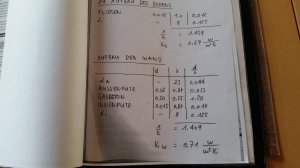 ZU AUFBAU DES BODENS
FLIESEN 0,012 1,0 0,012
αi - 8 0.125
1/k = 1.454
kA = 0,69 W/m²K
AUFBAU DER WAND
d λ d/λ
αa - 23 0.044
AUSSENPUTZ 0,02 0,87 0,023
GASBETON 0,20 1.20
INNENPUTZ 0,015 0,87 0,017
αi - 8 0.125
1/k = 1.409
kW = 0,71 W/m²K